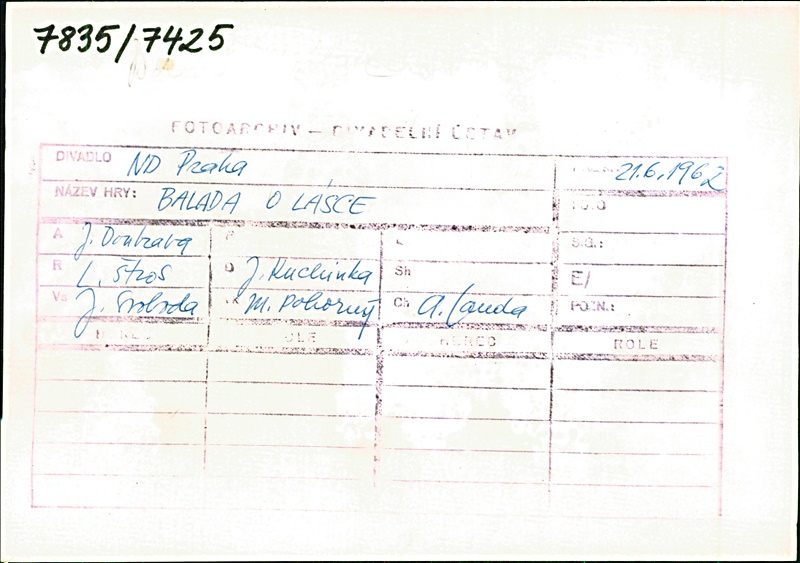 7835/7425
FOTOARCHIV — DIVADELNÍ ÚSTAV
DIVADLO ND Praha 21.6.1962
NÁZEV HRY: BALADA O LÁSCE
A J. Doubrava S.G.:
R L. Štros D J. Kuchinka Sh E/
Va J. Svoboda M. Pokorný Ch A. Landa POZN.:
HEREC ROLE HEREC ROLE